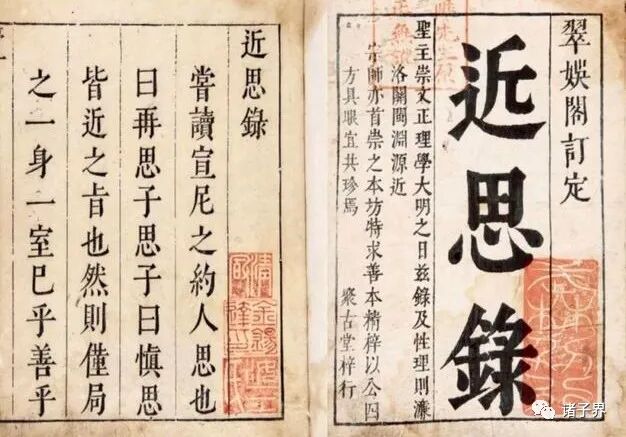 翠娛閣訂定
近思錄
聖主崇文正理學大明之日茲錄及性理則濂
洛關閩淵源近
宗師亦首崇之本坊特求善本精梓以公四
方具眼宜共珍焉
聚古堂梓行
近思錄
嘗讀宣尼之約人思也
曰再思子思子曰慎思
皆近之旨也然則僅局
之一身一室已乎善乎
诸子界